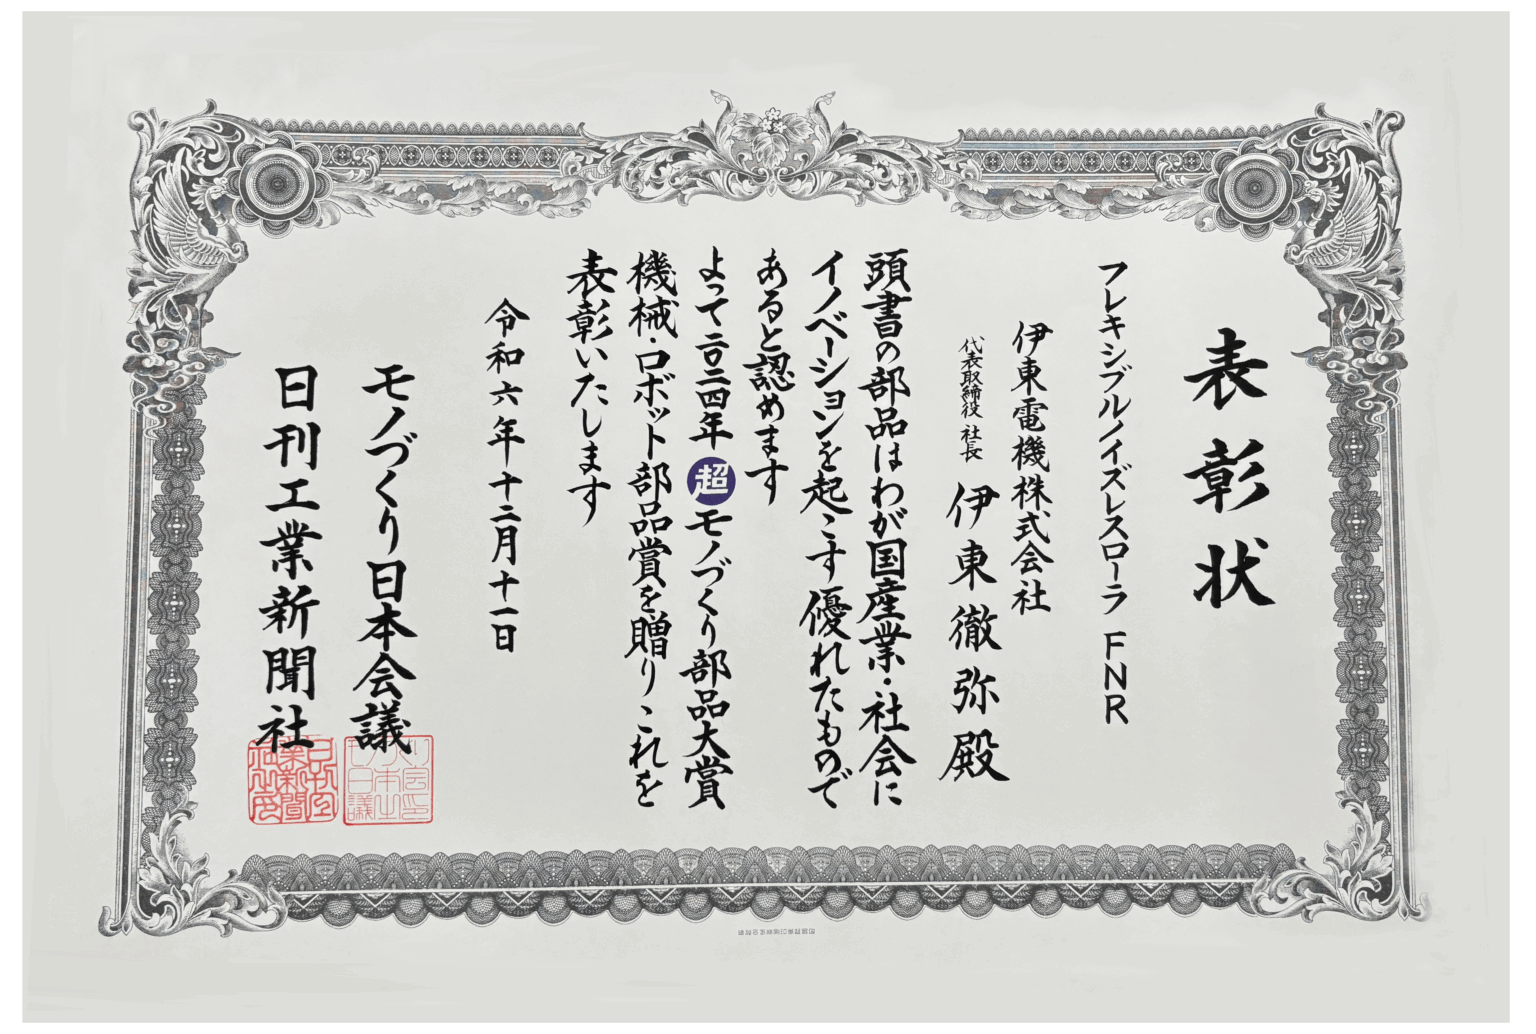 表彰状
フレキシブルノイズレスローラ FNR
伊東電機株式会社
代表取締役 社長 伊東徹弥殿
頭書の部品はわが国産業・社会に
イノベーションを起こす優れたもので
あると認めます
よって二〇二四年超モノづくり部品大賞
機械・ロボット部品賞を贈りこれを
表彰いたします
令和六年十二月十一日
モノづくり日本会議
日刊工業新聞社